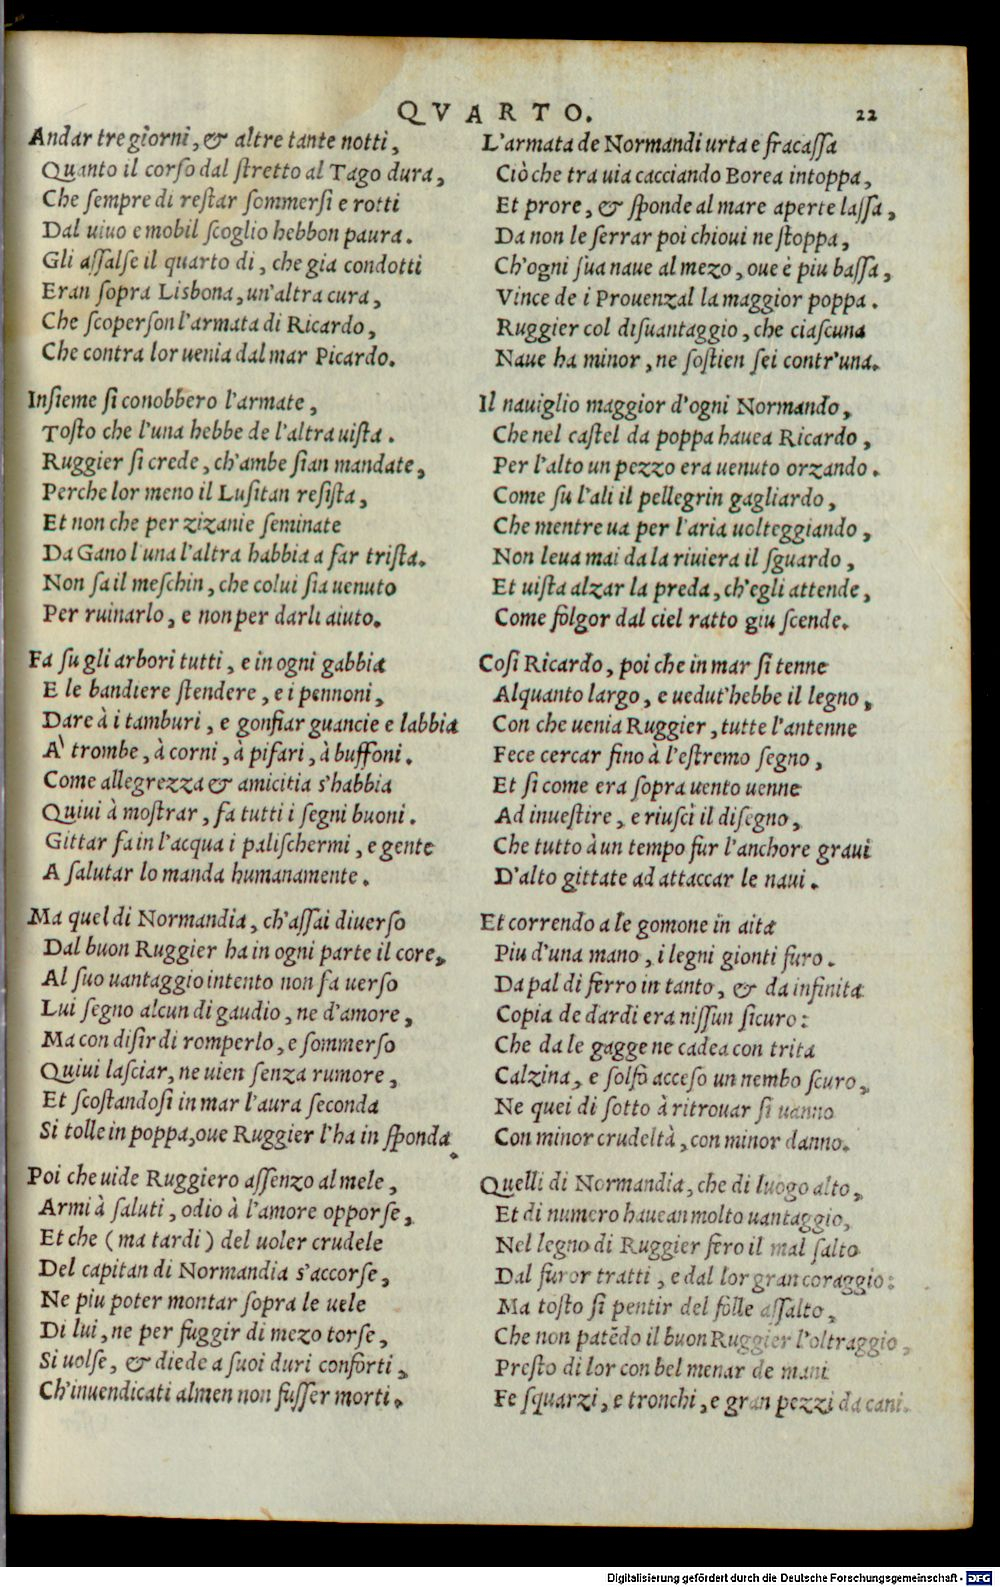 QVARTO. 22
Andar tre giorni, & altre tante notti,
Quanto il corso dal stretto al Tago dura,
Che sempre di restar sommersi e rotti
Dal uiuo e mobil scoglio hebbon paura.
Gli assalse il quarto di, che gia condotti
Eran sopra Lisbona, un'altra cura,
Che scoperson l'armata di Ricardo,
Che contra lor uenia dal mar Picardo.
Insieme si conobbero l'armate,
Tosto che l'una hebbe de l'altra uista.
Ruggier si crede, ch'ambe sian mandate,
Perche lor meno il Lusitan resista,
Et non che per zizanie seminate
Da Gano l'una l'altra habbia a far trista.
Non sa il meschin, che colui sia uenuto
Per ruinarlo, e non per darli aiuto.
Fa su gli arbori tutti, e in ogni gabbia
E le bandiere stendere, e i pennoni,
Dare à i tamburi, e gonfiar guancie e labbia
A' trombe, à corni, à pifari, à buffoni.
Come allegrezza & amicitia s'habbia
Quiui à mostrar, fa tutti i segni buoni.
Gittar fa in l'acqua i palischermi, e gente
A salutar lo manda humanamente.
Ma quel di Normandia, ch'assai diuerso
Dal buon Ruggier ha in ogni parte il core,
Al suo uantaggio intento non fa uerso
Lui segno alcun di gaudio, ne d'amore,
Ma con disir di romperlo, e sommerso
Quiui lasciar, ne uien senza rumore,
Et scostandosi in mar l'aura seconda
Si tolle in poppa, oue Ruggier l'ha in sponda.
Poi che uide Ruggiero assenzo al mele,
Armi à saluti, odio à l'amore opporse,
Et che (ma tardi) del uoler crudele
Del capitan di Normandia s'accorse,
Ne piu poter montar sopra le uele
Di lui, ne per fuggir di mezo torse,
Si uolse, & diede a suoi duri conforti,
Ch'inuendicati almen non fusser morti.
L'armata de Normandi urta e fracassa
Ciò che tra uia cacciando Borea intoppa,
Et prore, & sponde al mare aperte lassa,
Da non le serrar poi chioui ne stoppa,
Ch'ogni sua naue al mezo, oue è piu bassa,
Vince de i Prouenzal la maggior poppa.
Ruggier col disuantaggio, che ciascuna
Naue ha minor, ne sostien sei contr'una.
Il nauiglio maggior d'ogni Normando,
Che nel castel da poppa hauea Ricardo,
Per l'alto un pezzo era uenuto orzando.
Come su l'ali il pellegrin gagliardo,
Che mentre ua per l'aria uolteggiando,
Non leua mai da la riuiera il sguardo,
Et uista alzar la preda, ch'egli attende,
Come folgor dal ciel ratto giu scende.
Cosi Ricardo, poi che in mar si tenne
Alquanto largo, e uedut'hebbe il legno,
Con che uenia Ruggier, tutte l'antenne
Fece cercar fino à l'estremo segno,
Et si come era sopra uento uenne
Ad inuestire, e riuscì il disegno,
Che tutto à un tempo fur l'anchore graui
D'alto gittate ad attaccar le naui.
Et correndo a le gomone in aita
Piu d'una mano, i legni gionti furo.
Da pal di ferro in tanto, & da infinita
Copia de dardi era nissun sicuro:
Che da le gagge ne cadea con trita
Calzina, e solfo acceso un nembo scuro,
Ne quei di sotto à ritrouar si uanno
Con minor crudeltà, con minor danno.
Quelli di Normandia, che di luogo alto,
Et di numero hauean molto uantaggio,
Nel legno di Ruggier fero il mal salto
Dal furor tratti, e dal lor gran coraggio:
Ma tosto si pentir del folle assalto,
Che non patẽdo il buon Ruggier l'oltraggio,
Presto di lor con bel menar de mani
Fe squarzi, e tronchi, e gran pezzi da cani.
Digitalisierung gefördert durch die Deutsche Forschungsgemeinschaft - DFG